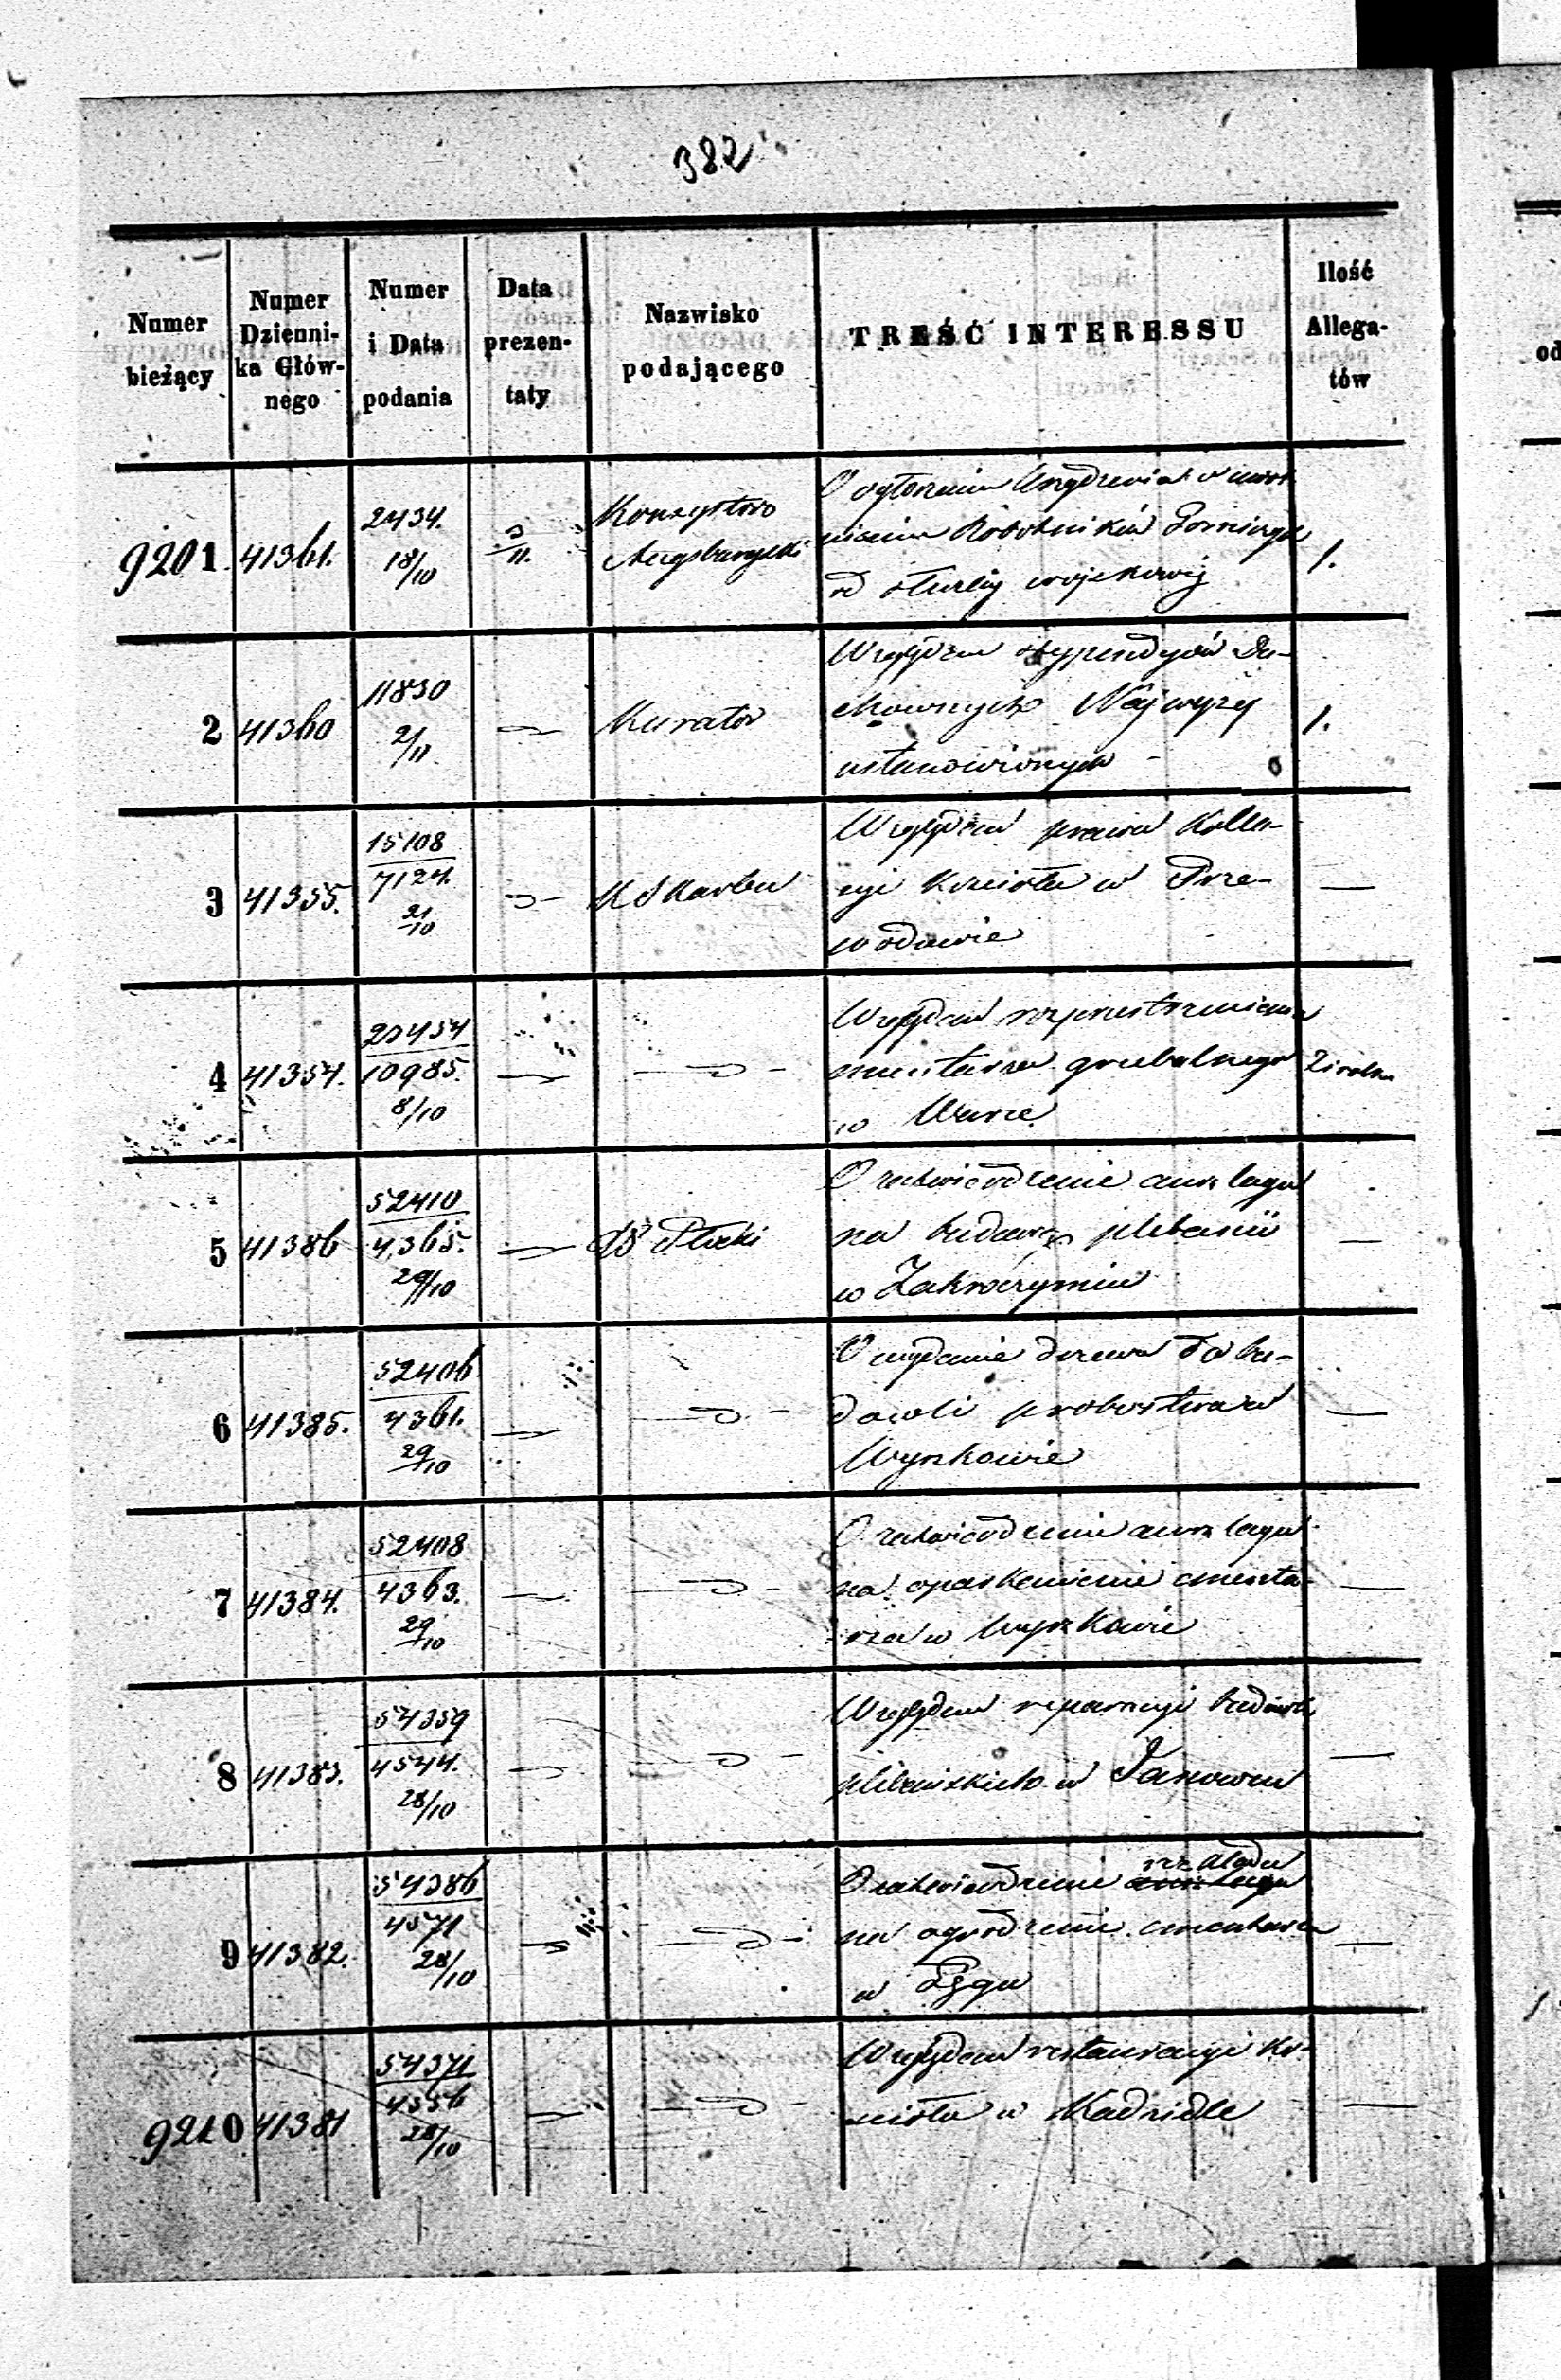 382
Numer bieżący
Numer Dzienni-
ka Głów-
nego
Numer i Data podania
Data prezen-
taty
Nazwisko podającego
TREŚĆ INTERESSU
Ilość Allega-
tów
9201 41361. 2434. 18/10 3/11. Konsystorz Augsburgski
O ogłoszenie
Robotników Górniczych
od służby wojskowej
1.
2 41360 11830 2/11 Kurator
Względem stypendyów Du-
chownych Najwyżej
ustanowionych
1.
3 41355. 15108 7124. 21/10 K S Karbu
Względem prawa Kolla-
cyi Kościoła w Prze-
wodowie
—
4 41354. 20454 10985. 8/10
Względem rozprzestrzenienia
cmentarza grzebalnego
w Warce
5 41386 52410 4365. 29/10 Płocki
O zatwierdzenie anszlagu
na budowę plebanii
w Zakroczymiu
—
6 41385. 52406 4361. 29/10
O wydanie drzewa do bu-
dowli probostwa w
Wyszkowie
—
7 41384. 52408 4363. 29/10
O zatwierdzenie anszlagu
na oparkanienie cmenta-
rza w Wyszkowie
—
8 41383. 54359 4544. 28/10
Względem reparacyi budowli
plebańskich w Janowcu
—
9 41382. 54386 4571 28/10
O zatwierdzenie rozkładu
na ogrodzenie cmentarza
w Łęgu
—
9210 41381 54371 4556 28/10
Względem restauracyi Ko-
ścioła w Kadzidle
—